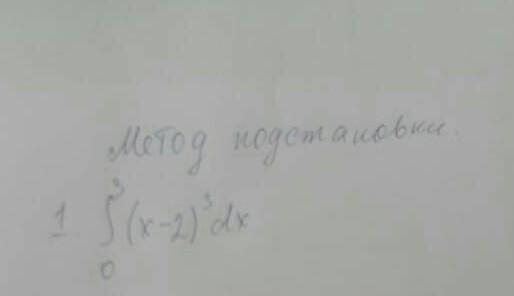 Метод подстановки.
1 ∫₀³ (x-2)³dx